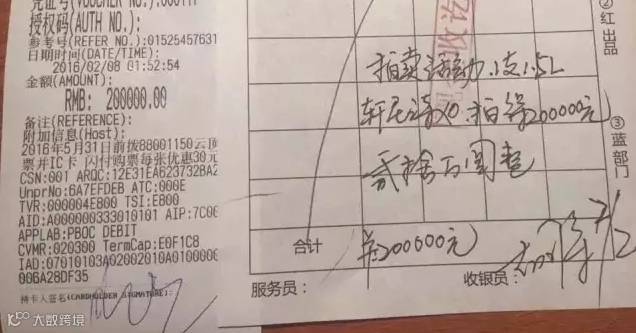 凭证号(VOUCHER NO.):000111
授权码(AUTH NO.):
参考号(REFER NO.):01525457631
日期时间(DATE/TIME):
2016/02/08 01:52:54
金额(AMOUNT):
RMB: 200000.00
备注(REFERENCE):
附加信息(Host):
2016年5月31日前拨88001150云
票并IC卡 闪付购票每张优惠30元
CSN:001 ARQC:12E31EA623732BA2
UnprNo:6A7EFDEB ATC:000E
TVR:000004E800 TSI:E800
AID:A000000333010101 AIP:7C00
APPLAB:PBOC DEBIT
CVMR:020300 TermCap:E0F1C8
IAD:07010103A02002010A0100000
006A28DF35
持卡人签名(CARDHOLDER SIGNATURE):
拍卖活动.1支1.5L
轩尼诗XO.拍得200000元
贰拾万圆整
合计
¥200000元
服务员:
收银员:
②红出品
③蓝部门
大数跨境